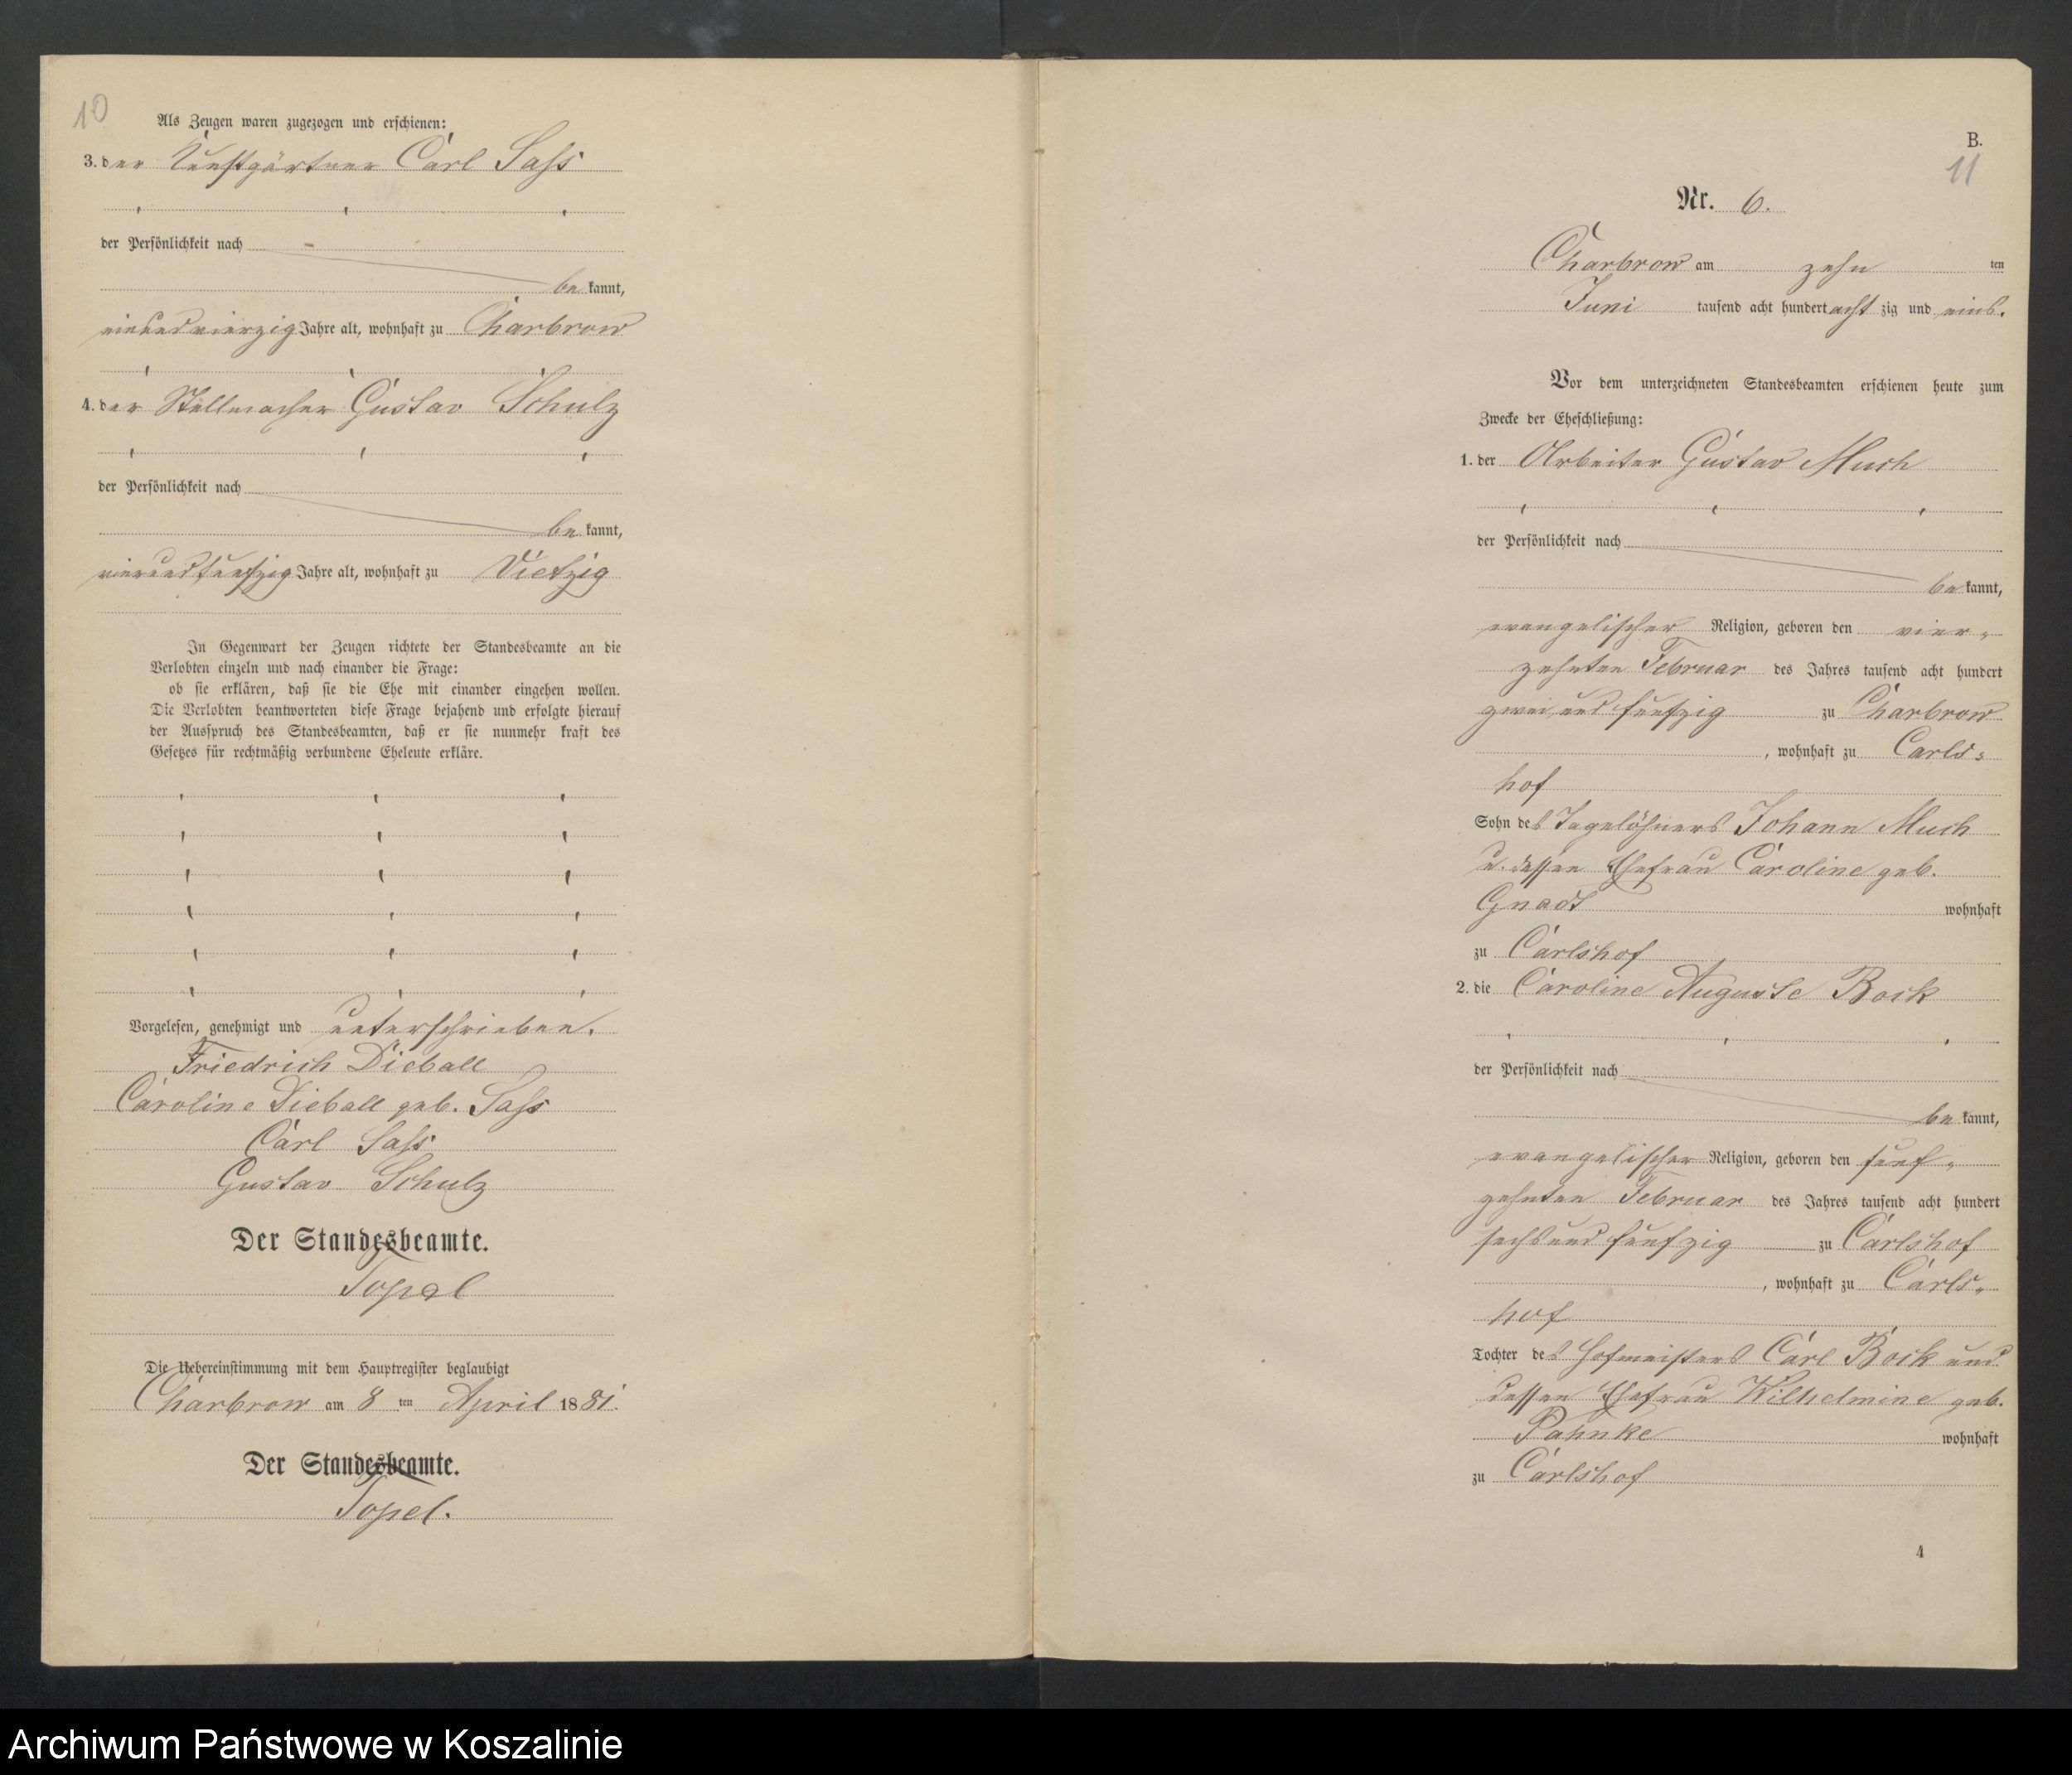 10
Als Zeugen waren zugezogen und erschienen:
3. der Kunstgärtner Carl Sass
der Persönlichkeit nach
bekannt,
einundvierzig Jahre alt, wohnhaft zu Charbrow
4. der Stellmacher Gustav Schulz
der Persönlichkeit nach
bekannt,
vierundfunfzig Jahre alt, wohnhaft zu Vietzig
In Gegenwart der Zeugen richtete der Standesbeamte an die
Verlobten einzeln und nach einander die Frage:
ob sie erklären, daß sie die Ehe mit einander eingehen wollen.
Die Verlobten beantworteten diese Frage bejahend und erfolgte hierauf
der Ausspruch des Standesbeamten, daß er sie nunmehr kraft des
Gesetzes für rechtmäßig verbundene Eheleute erkläre.
Vorgelesen, genehmigt und unterschrieben.
Friedrich Dieball
Caroline Dieball geb. Sass
Carl Sass
Gustav Schulz
Der Standesbeamte.
Topel
Die Uebereinstimmung mit dem Hauptregister beglaubigt
Charbrow am 8 ten April 1881.
Der Standesbeamte.
Topel.
B.
11
Nr. 6.
Charbrow am zehn ten
Juni tausend acht hundert acht zig und eins.
Vor dem unterzeichneten Standesbeamten erschienen heute zum
Zwecke der Eheschließung:
1. der Arbeiter Gustav Much
der Persönlichkeit nach
bekannt,
evangelischer Religion, geboren den vier-
zehnten Februar des Jahres tausend acht hundert
zwei und funfzig zu Charbrow
, wohnhaft zu Carls-
hof
Sohn des Tagelöhners Johann Much
u. dessen Ehefrau Caroline geb.
Gnadt wohnhaft
zu Carlshof
2. die Caroline Auguste Bock
der Persönlichkeit nach
bekannt,
evangelischer Religion, geboren den funf-
zehnten Februar des Jahres tausend acht hundert
sechsund funfzig zu Carlshof
, wohnhaft zu Carls-
hof
Tochter des Hofmeisters Carl Bock und
dessen Ehefrau Wilhelmine geb.
Pahnke wohnhaft
zu Carlshof
4
Archiwum Państwowe w Koszalinie